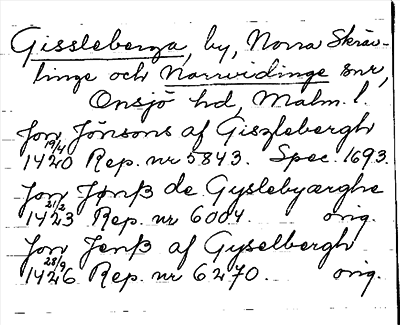 Gissleberga, by, Norra Skräv-
linge och Norrvidinge snr,
Onsjö hd, Malm. l.
Jon Jönsons af Giszlebergh
19/4 1420 Rep. nr 5843. Spec. 1693.
Jon Jønß de Gyslebyærghe
21/2 1423 Rep. nr 6004. orig.
Jon Jenß af Gyselbergh
28/9 1426 Rep. nr 6270. orig.